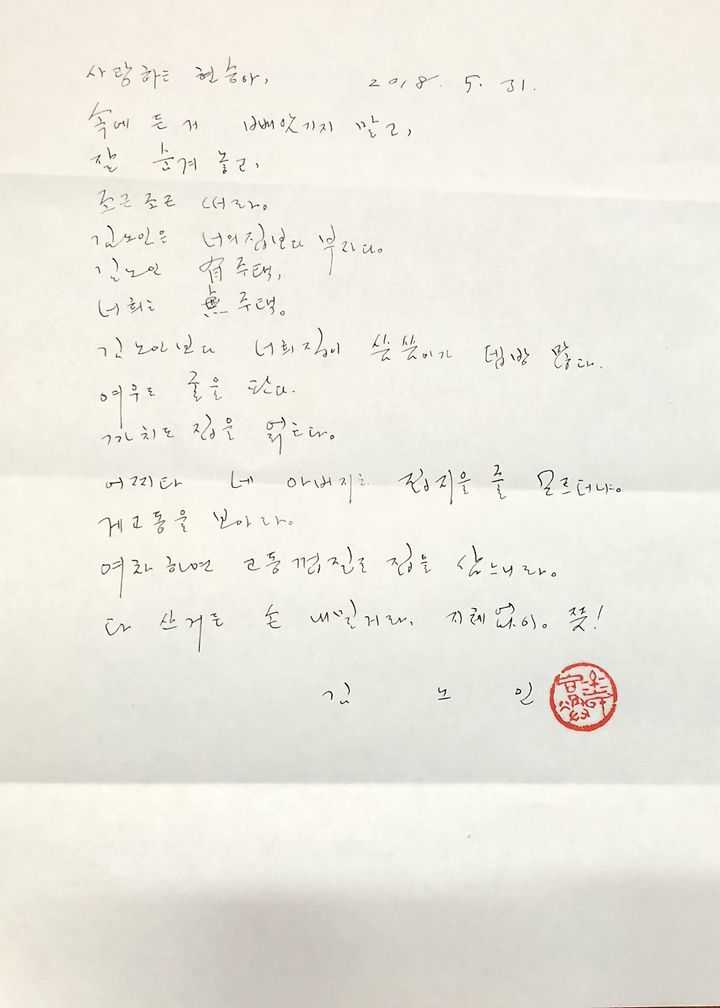 사랑하는 현승아, 2018. 5. 31.
속에 든 게 빼앗기지 말고,
잘 숨겨 놓고,
조근조근 떠라.
김노인은 너의집보다 부자다.
김노인 有주택,
너희는 無주택.
김노인보다 너희집이 씀씀이가 덥방 많다.
여우도 굴을 판다.
까치도 집을 얽는다.
어찌타 네 아버지는 집지을 줄 모르더냐.
게고동을 보아라.
여차하면 고동껍질로 집을 삼느니라.
다 쓰거든 손 내밀거라, 지체없이. 쯪!
김 노 인